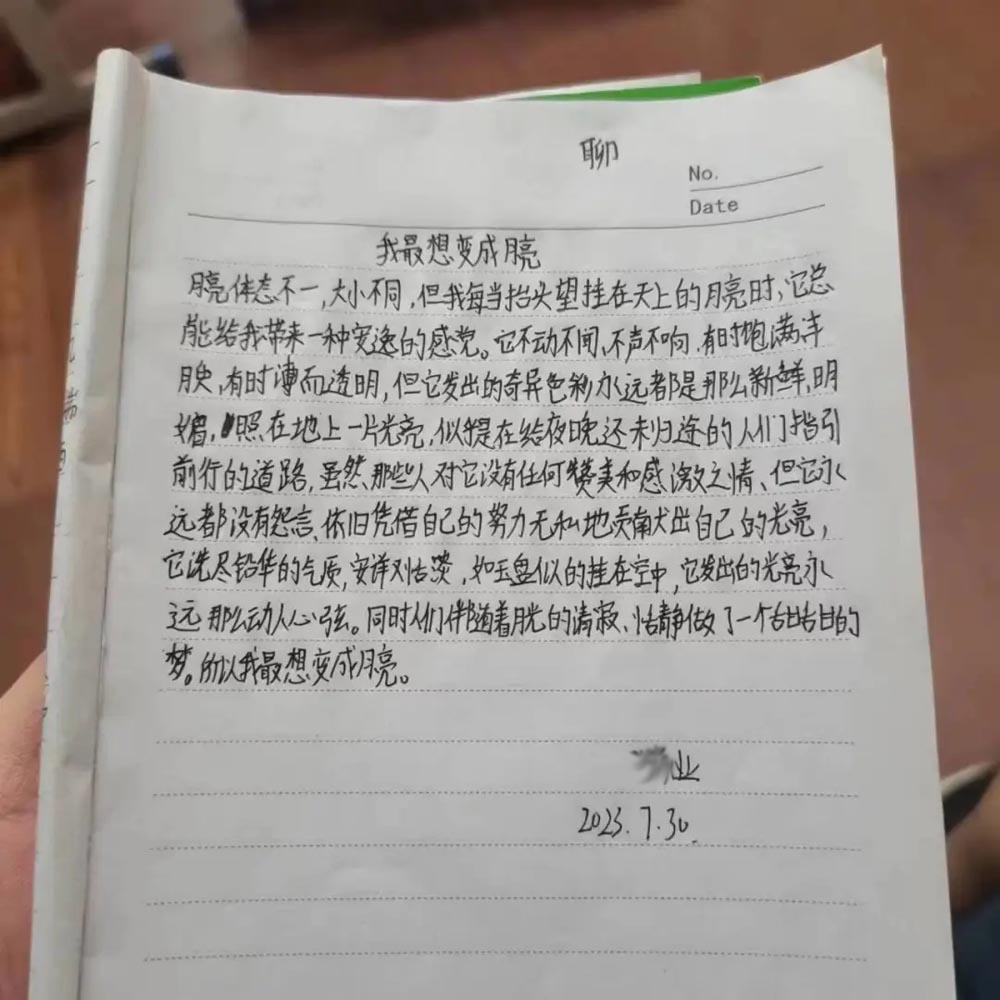 聊
No.
Date
我最想变成月亮
月亮体态不一,大小不同,但我每当抬头望挂在天上的月亮时,它总
能给我带来一种安逸的感觉。它不动不闹,不声不响,有时饱满丰
腴,有时薄而透明,但它发出的奇异色彩永远都是那么新鲜,明
媚,照在地上一片光亮,似乎是在给夜晚还未归途的人们指引
前行的道路,虽然那些人对它没有任何赞美和感激之情、但它永
远都没有怨言、依旧凭借自己的努力无私地贡献出自己的光亮,
它洗尽铅华的气质,安详又恬淡,如玉盘似的挂在空中,它发出的光亮永
远那么动人心弦。同时人们伴随着月光的清寂、恬静做了一个甜甜的
梦。所以我最想变成月亮。
业
2023.7.30